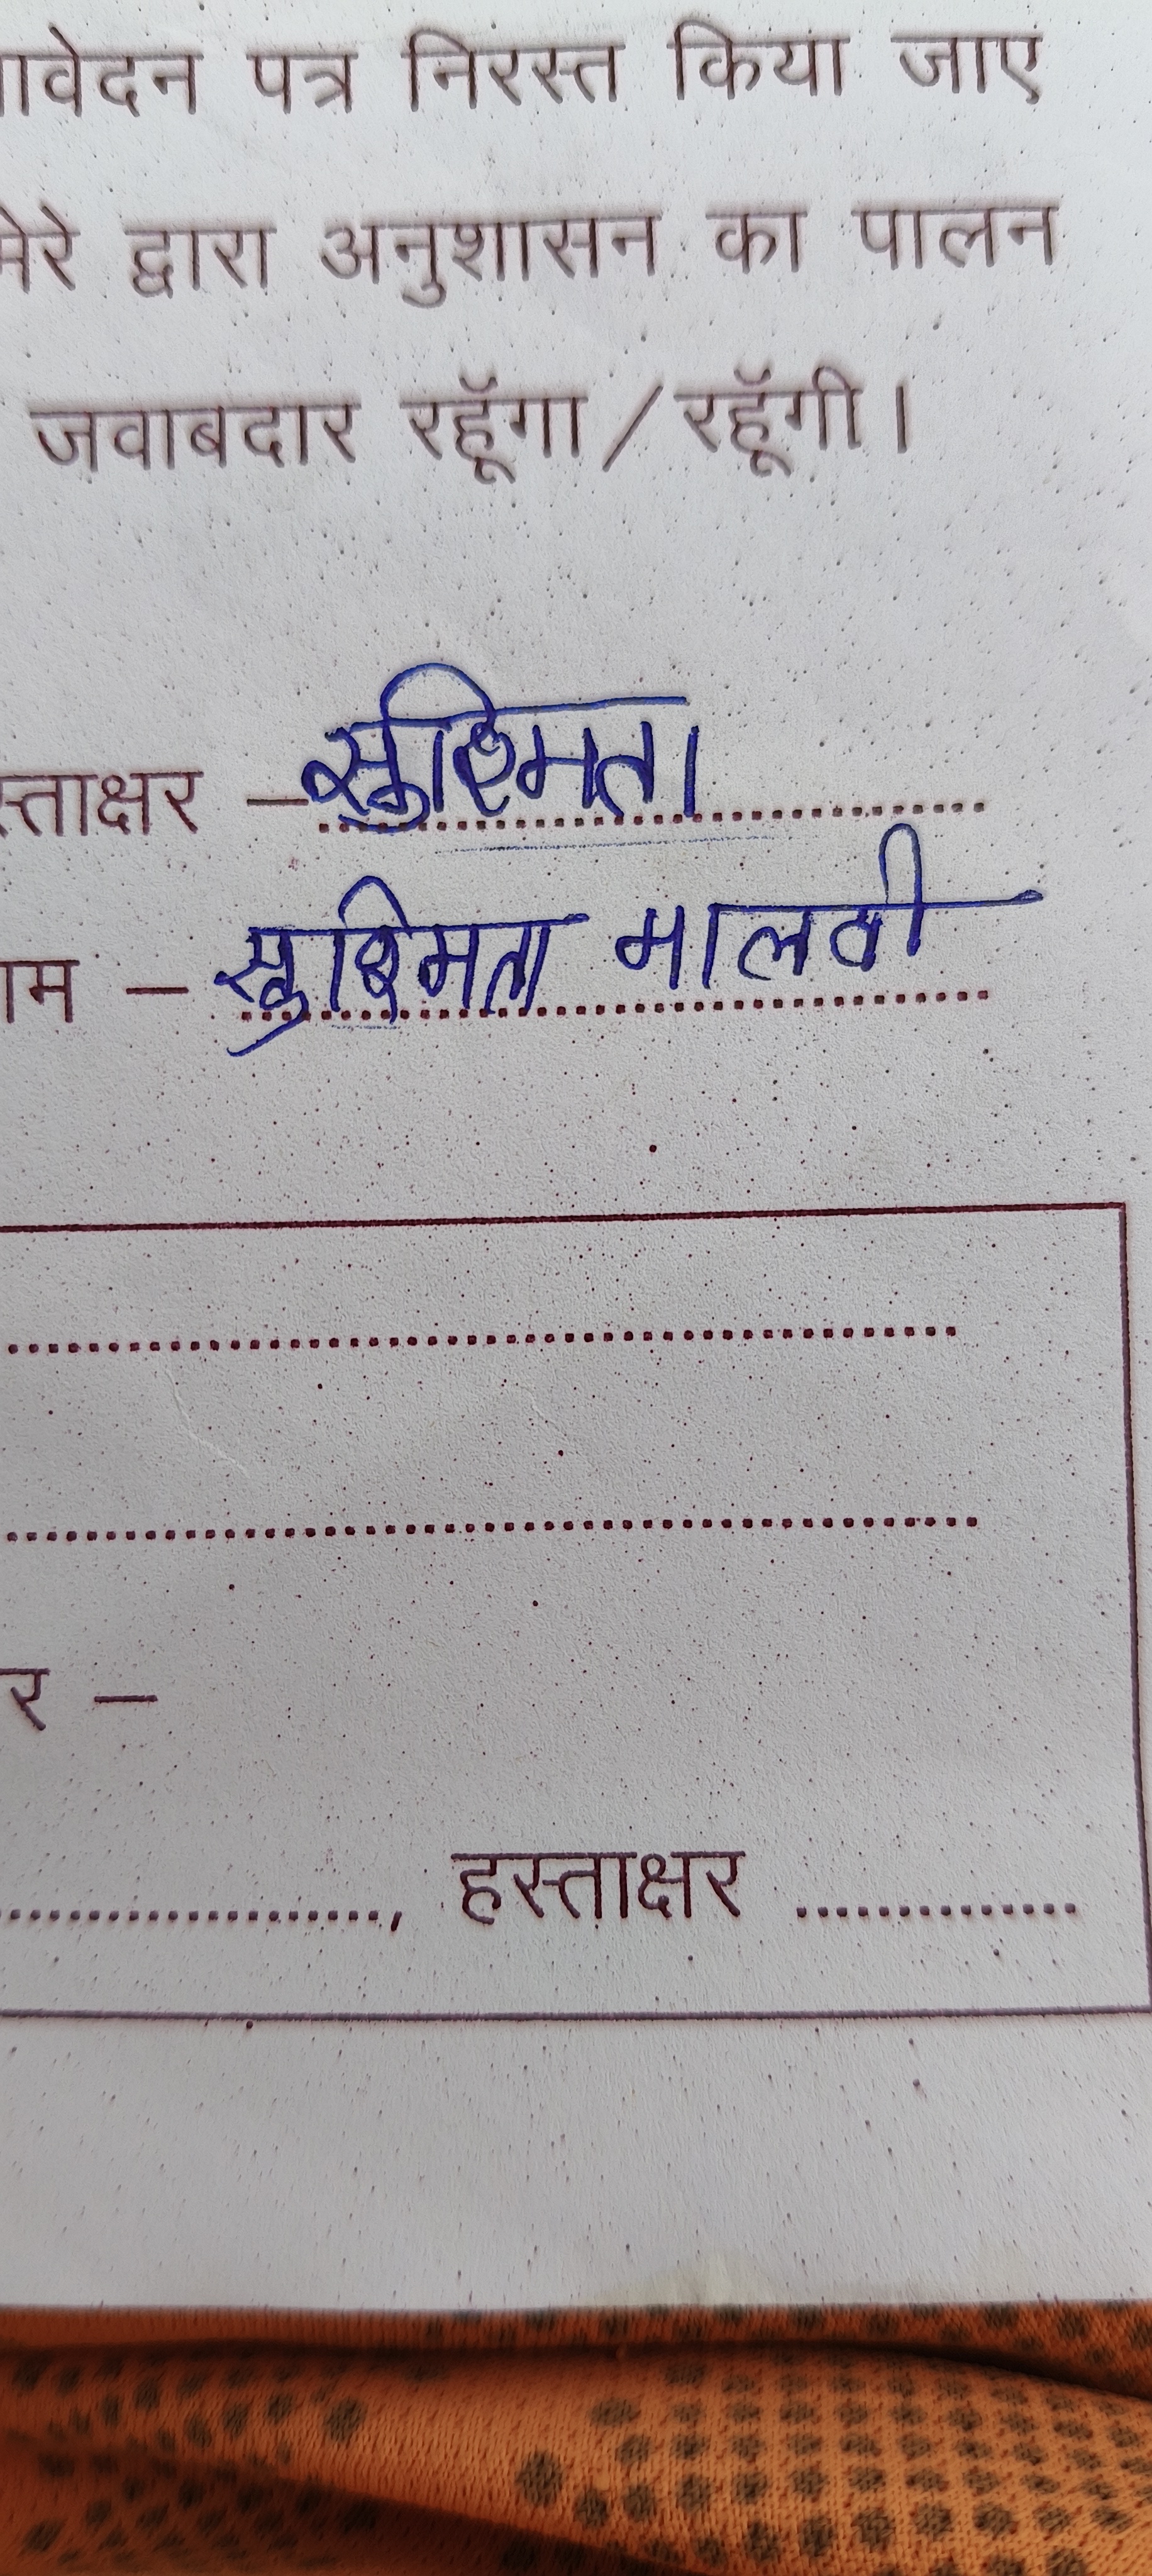 आवेदन पत्र निरस्त किया जाए
मेरे द्वारा अनुशासन का पालन
जवाबदार रहूॅगा / रहूॅगी।
स्ताक्षर – सुश्मिता
ाम – सुश्मिता मालवी
र –
, हस्ताक्षर